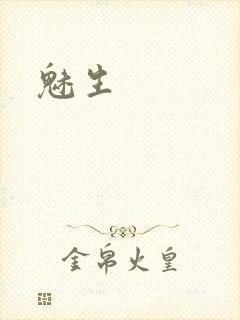 魅生
金帛火皇